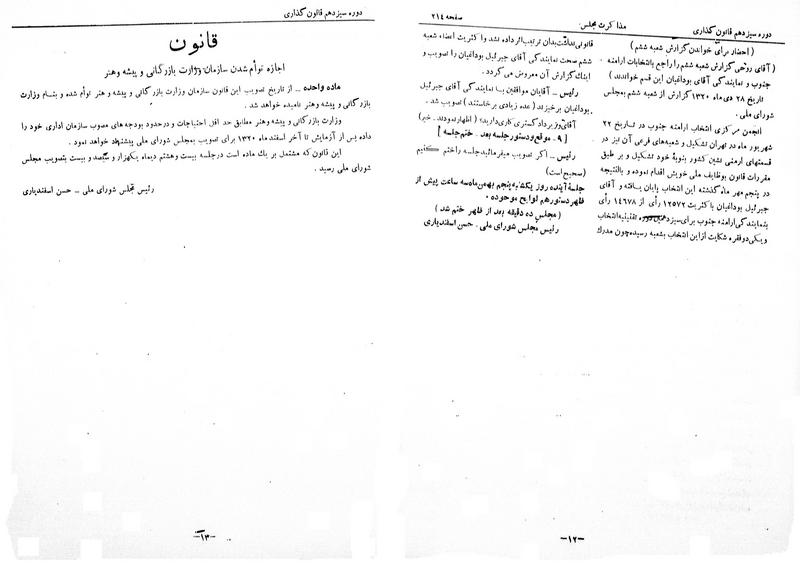 دوره سیزدهم قانون گذاری
مذاکرت مجلس
صفحه ۲۱۴
( احضار برای خواندن گزارش شعبه ششم )
( آقای روحی گزارش شعبه ششم را راجع بانتخابات ارامنه
جنوب و نمایندگی آقای بوداغیان این قسم خواندند )
تاریخ ۲۸ دی ماه ۱۳۲۰ گزارش از شعبه ششم بمجلس
شورای ملی .
انجمن مرکزی انتخاب ارامنه جنوب در تاریخ ۲۲
شهریور ماه در تهران تشکیل و شعبه‌های فرعی آن نیز در
قسمتهای ارمنی نشین کشور بنوبهٔ خود تشکیل و بر طبق
مقررات قانون بوظایف ملی خویش اقدام نموده و بالنتیجه
در پنجم مهر ماه گذشته این انتخاب پایان یافته و آقای
جبرئیل بوداغیان با کثریت ۱۲۵۷۲ رأی از ۱۴۶۷۸ رأی
بنمایندگی ارامنه جنوب برای سیزدهمین دوره تقنینیه انتخاب
و یکی دو فقره شکایت از این انتخاب بشعبه رسیده چون مدرک
قانونی نداشت بدان ترتیب اثر داده نشد و اکثریت اعضاء شعبه
ششم صحت نمایندگی آقای جبرئیل بوداغیان را تصویب و
اینك گزارش آن معروض می گردد .
رئیس _ آقایان موافقین با نمایندگی آقای جبرئیل
بوداغیان برخیزند ( عده زیادی برخاستند ) تصویب شد .
آقای وزیر دادگستری کاری دارید؟ ( اظهار نمودند . خیر )
[ ۹ ـ موقع و دستور جلسه بعد . ختم جلسه ]
رئیس _ اگر تصویب میفرمائید جلسه را ختم میکنیم
(صحیح است)
جلسهٔ آینده روز یکشنبه پنجم بهمن ماه سه ساعت پیش از
ظهر دستور هم لوایح موجوده .
( مجلس ده دقیقه بعد از ظهر ختم شد )
رئیس مجلس شورای ملی . حسن اسفندیاری
—۱۲—
دوره سیزدهم قانون گذاری
قانون
اجازه توأم شدن سازمان وزارت بازرگانی و پیشه وهنر
ماده واحده _ از تاریخ تصویب این قانون سازمان وزارت بازرگانی و پیشه و هنر توأم شده و بنام وزارت
بازرگانی و پیشه وهنر نامیده خواهد شد .
وزارت بازرگانی و پیشه وهنر مطابق حد اقل احتیاجات و در حدود بودجه‌های مصوب سازمان اداری خود را
داده پس از آزمایش تا آخر اسفند ماه ۱۳۲۰ برای تصویب بمجلس شورای ملی پیشنهاد خواهد نمود .
این قانون که مشتمل بر یك ماده است در جلسه بیست وهشتم دیماه یکهزار و سیصد و بیست بتصویب مجلس
شورای ملی رسید .
رئیس مجلس شورای ملی _ حسن اسفندیاری
—۱۳—